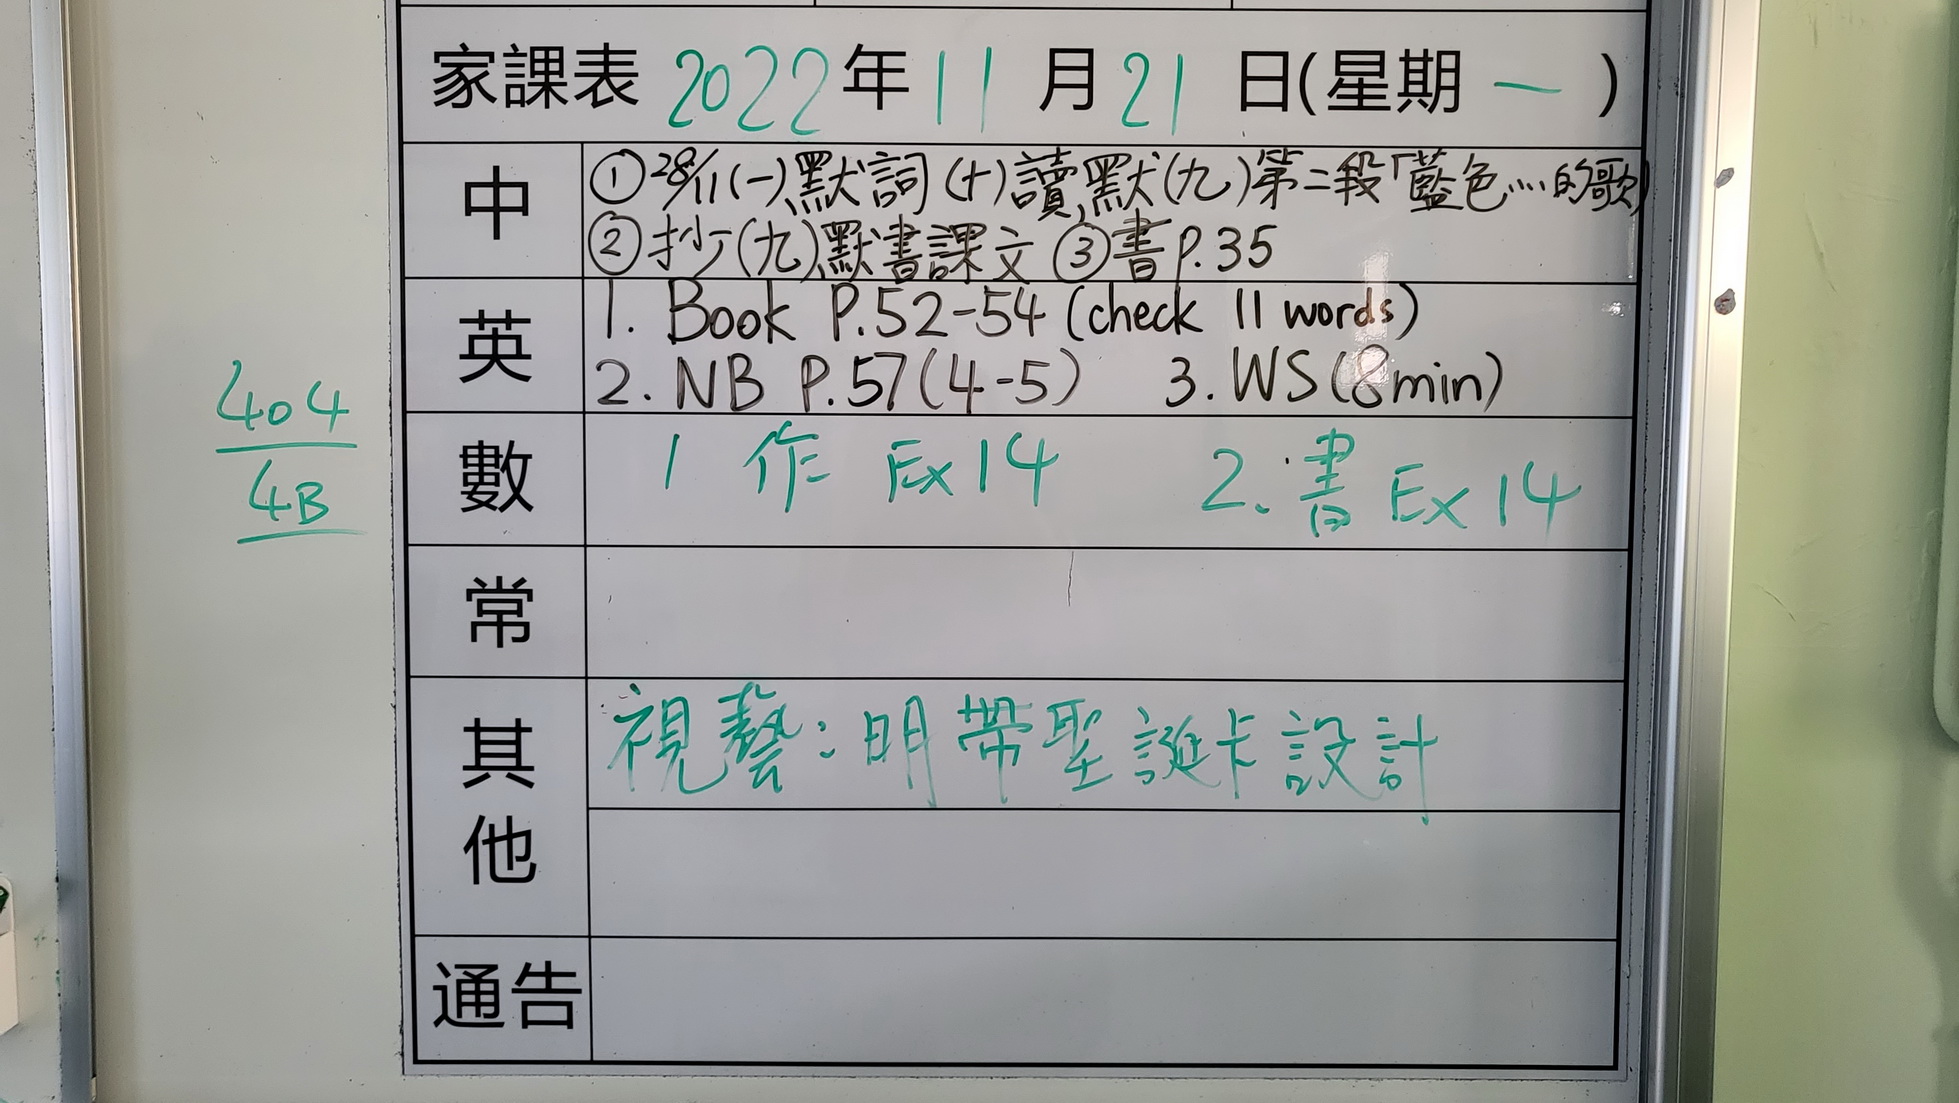 家課表 2022年 11月 21日(星期一)
中
①28/11(一)默詞(十)讀默(九)第二段「藍色……的歌」
②抄(九)默書課文 ③書P.35
英
1. Book P.52-54 (check 11 words)
2. NB P.57(4-5) 3. WS(8min)
404
4B
數
1 作 Ex14 2. 書 Ex14
常
其他
視藝:明帶聖誕卡設計
通告